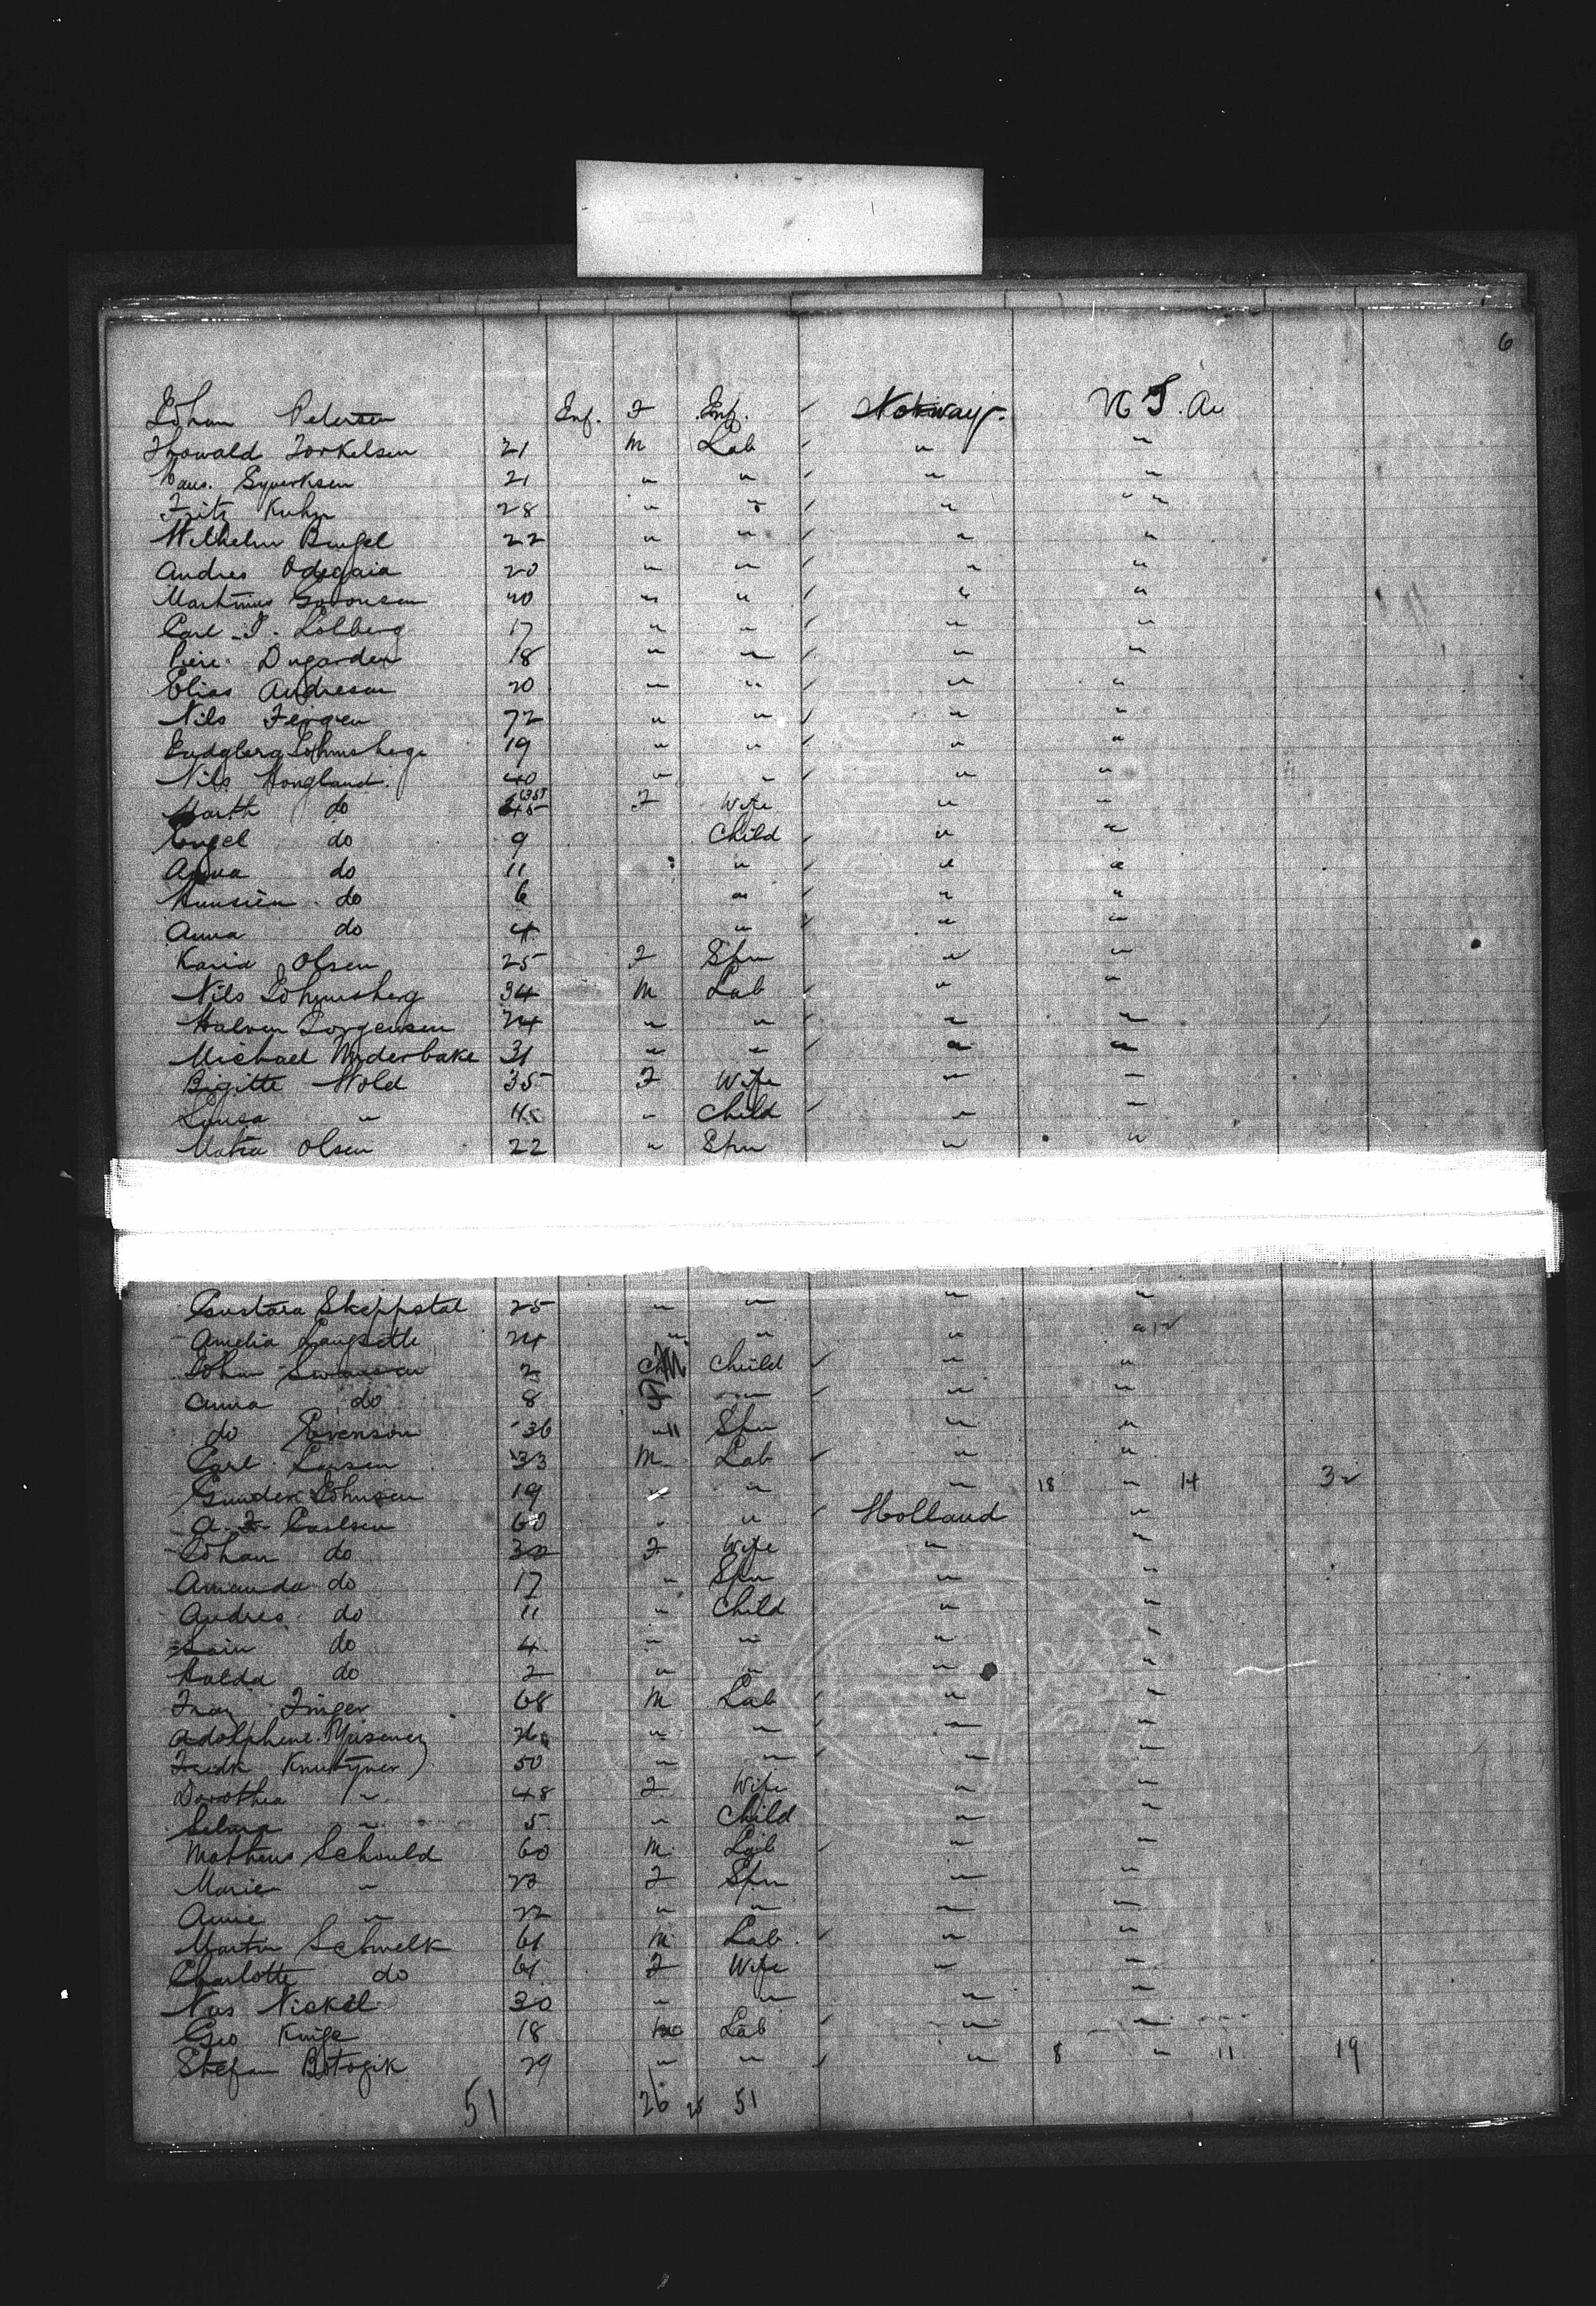 6
Johan Petersen Inf. F Inf. Norway U S A
Thorwald Torkelsen 21 M Lab " "
Syverksen 21 " " " "
Fritz Kuhn 28 " " " "
Wilhelm Bengel 22 " " " "
Andres Odegaia 20 " " " "
Martinus " " " "
Carl J. Solberg 17 " " " "
Dugarden 18 " " " "
Elias Andresen 20 " " " "
Nils 72 " " " "
19 " " " "
Nils Hougland 40 " " " "
Marth do F Wife " "
Engel do 9 Child " "
Anna do 11 " " "
do 6 " " "
Anna do 4 " " "
Karia Olsen 25 F Spn " "
Nils Johnusberg 34 M Lab " "
Halven Jorgensen 24 " " " "
Michael Nyderbake 31 " " " "
Bigitte Wold 35 F Wife " "
Lousa " 4 " Child " "
Matea Olsen 22 " Spn " "
Gustava Skeppstal 25 " " " "
Amelia Langsette 24 " " " "
John Swansen 2 M Child " "
Anna do 8 F " " "
do Evenson 36 " Spn " "
Carl Larsen 33 M Lab " "
Gunder Johnsen 19 " " " 18 " 14 32
A. F. Carlsen 60 " " Holland "
Johan do 32 F Wife " "
Amanda do 17 " Spn " "
Andres do 11 " Child " "
do 4 " " " "
Halda do 2 " " " "
Finger 68 M Lab " "
Adolphine " " " "
Fredk 50 " " " "
Dorothea " 48 F Wife " "
Selma " 5 " Child " "
Matheus Schould 60 M Lab " "
Marie " F Spn " "
Annie " 22 " " " "
Martin Schwelk 61 M Lab " "
Charlotte do 61 F Wife " "
Nickel 30 " " " "
Geo 18 M Lab " "
Stefan Botogik 29 " " " 8 " 11 19
51 26 25 51